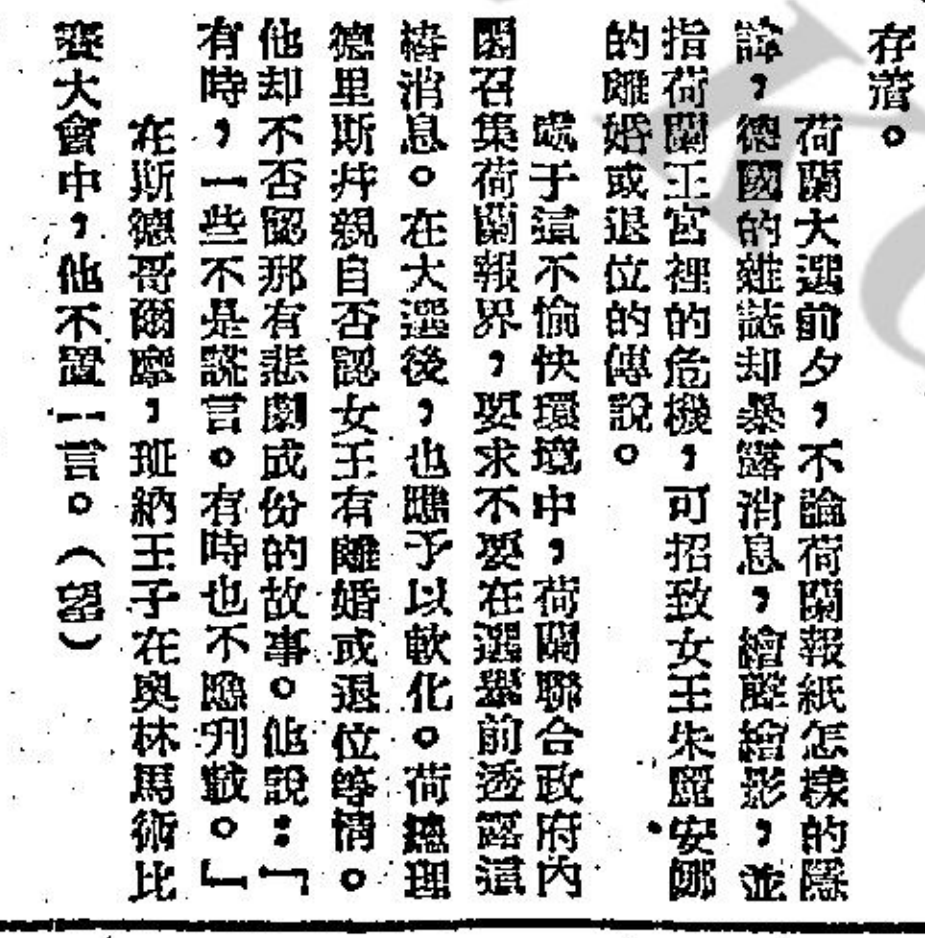 存濟。
荷蘭大選前夕，不論荷蘭報紙怎樣的隱
諱，德國的雜誌却暴露消息，繪聲繪影，並
指荷蘭王宮裡的危機，可招致女王朱麗安娜
的離婚或退位的傳說。
處于這不愉快環境中，荷蘭聯合政府內
閣召集荷蘭報界，要求不要在選舉前透露這
樁消息。在大選後，也應予以軟化。荷總理
德里斯幷親自否認女王有離婚或退位等情。
他却不否認那有悲劇成份的故事。他說：「
有時，一些不是謊言。有時也不應刋載。」
在斯德哥爾摩，班納王子在奧林馬術比
賽大會中，他不置一言。（望）